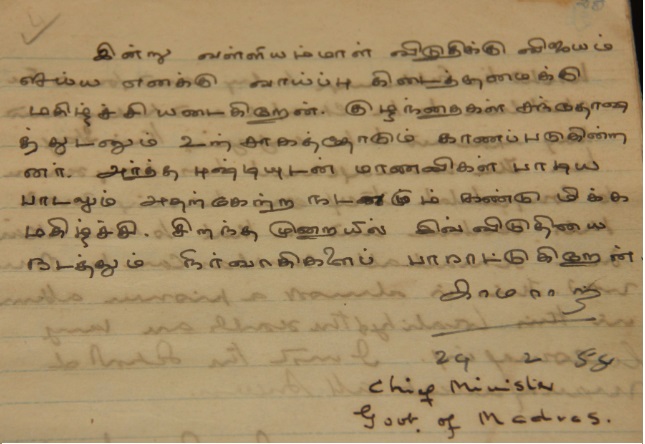 இன்று வள்ளியம்மாள் விடுதிக்கு விஜயம்
செய்ய எனக்கு வாய்ப்பு கிடைத்தமைக்கு
மகிழ்ச்சியடைகிறேன். குழந்தைகள் சந்தோஷ
த்துடனும் உற்சாகத்தோடும் காணப்படுகின்ற
னர். அர்த்த புஷ்டியுடன் மாணவிகள் பாடிய
பாடலும் அதற்கேற்ற நடனமும் கண்டு மிக்க
மகிழ்ச்சி. சிறந்த முறையில் இவ்விடுதியை
நடத்தும் நிர்வாகிகளைப் பாராட்டுகிறேன்.
காமராஜ்
29 2 56
Chief Minister
Govt. of Madras.